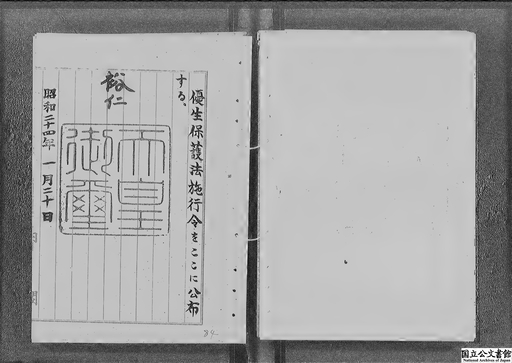 優生保護法施行令をここに公布
する、
裕仁
天皇
御璽
昭和二十四年一月二十日
内閣
89
国立公文書館
National Archives of Japan